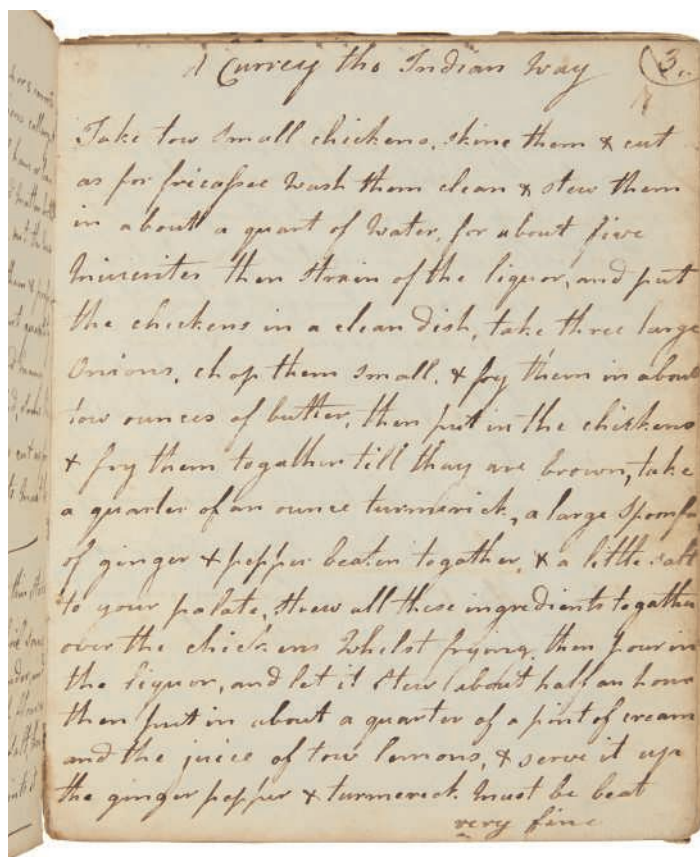 A Currey the Indian Way
3
Take tow small chickens, skine them & cut
as for fricassee Wash them clean & stew them
in about a quart of Water, for about five
Minenites then strain of the liquor, and put
the chickens in a clean dish, take three large
Onions, chop them small, & fry them in about
tow ounces of butter, then put in the chickens
& fry them togather till thay are brown, take
a quarter of an ounce turmerick, a large spoonful
of ginger & pepper beaten togather, & a little salt
to your palate, strew all these ingredients togather
over the chickens Whilst frying, then pour in
the liquor, and let it stew about half an hour
then put in about a quarter of a pint of cream
and the juice of tow lemons, & serve it up
the ginger pepper & turmerick Must be beat
very fine